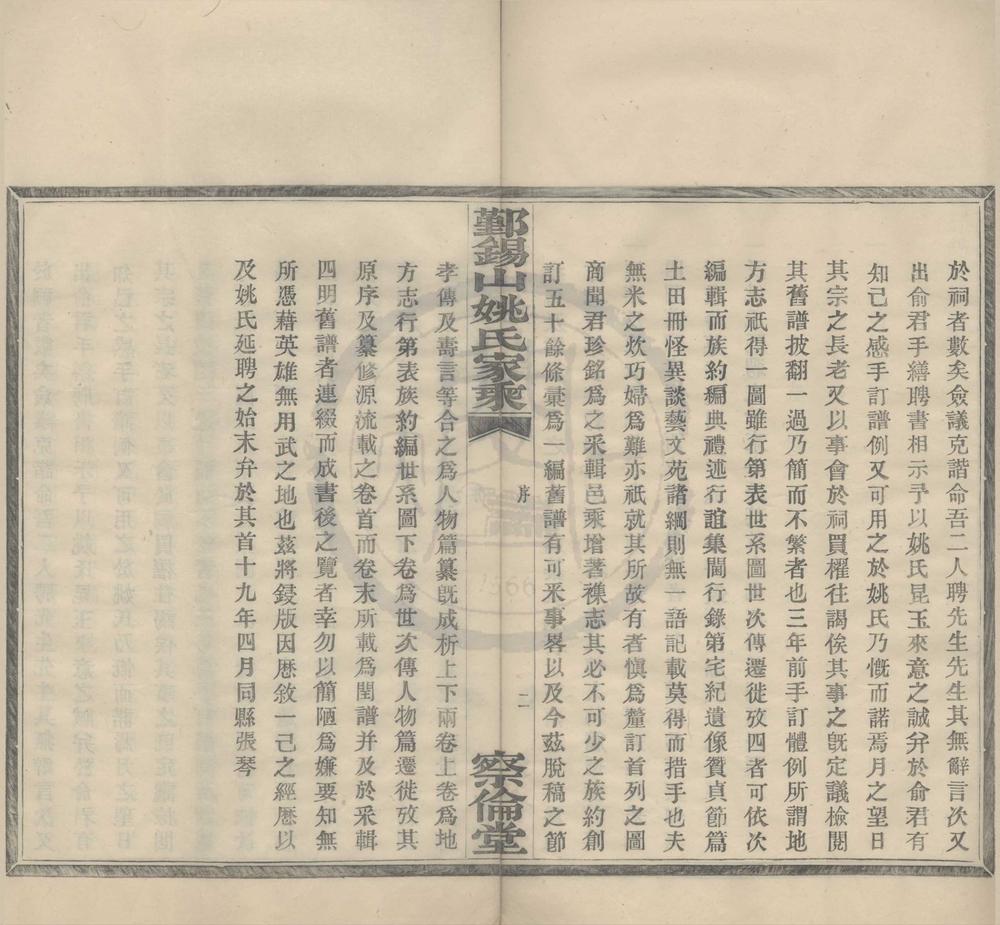 於祠者數矣僉議克諧命吾二人聘先生先生其無辭言次又
出俞君手繕聘書相示予以姚氏昆玉來意之誠并於俞君有
知己之感手訂譜例又可用之於姚氏乃慨而諾焉月之望日
其宗之長老又以事會於祠買櫂往謁俟其事之旣定議檢閱
其舊譜披翻一過乃簡而不繁者也三年前手訂體例所謂地
方志祇得一圖雖行第表世系圖世次傳遷徙攷四者可依次
編輯而族約編典禮述行誼集閫行錄第宅紀遺像贊貞節篇
土田冊怪異談藝文苑諸綱則無一語記載莫得而措手也夫
無米之炊巧婦爲難亦祇就其所故有者愼爲釐訂首列之圖
商聞君珍銘爲之采輯邑乘增著襍志其必不可少之族約創
訂五十餘條彙爲一編舊譜有可采事畧以及今茲脫稿之節
鄞錫山姚氏家乘
序
二
察倫堂
孝傳及壽言等合之爲人物篇纂旣成析上下兩卷上卷爲地
方志行第表族約編世系圖下卷爲世次傳人物篇遷徙攷其
原序及纂修源流載之卷首而卷末所載爲閏譜并及於采輯
四明舊譜者連綴而成書後之覽者幸勿以簡陋爲嫌要知無
所憑藉英雄無用武之地也茲將鋟版因歷敘一己之經歷以
及姚氏延聘之始末弁於其首十九年四月同縣張琴
1866